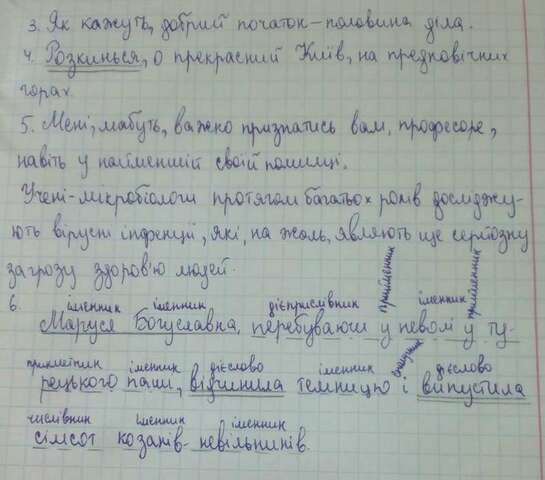 3. Як кажуть, добрий початок – половина діла.
4. Розкинься, о прекрасний Київ, на предковічних
горах.
5. Мені, мабуть, важко признатись вам, професоре,
навіть у найменшій своїй помилці.
Учені-мікробіологи протягом багатьох років досліджу-
ють вірусні інфекції, які, на жаль, являють ще серйозну
загрозу здоров'ю людей.
іменник іменник дієприслівник прийменник іменник прийменник
6. Маруся Богуславка, перебуваючи у неволі у ту-
прикметник іменник дієслово іменник сполучник дієслово
рецького паши, відчинила темницю і випустила
числівник іменник іменник
сімсот козаків-невільників.